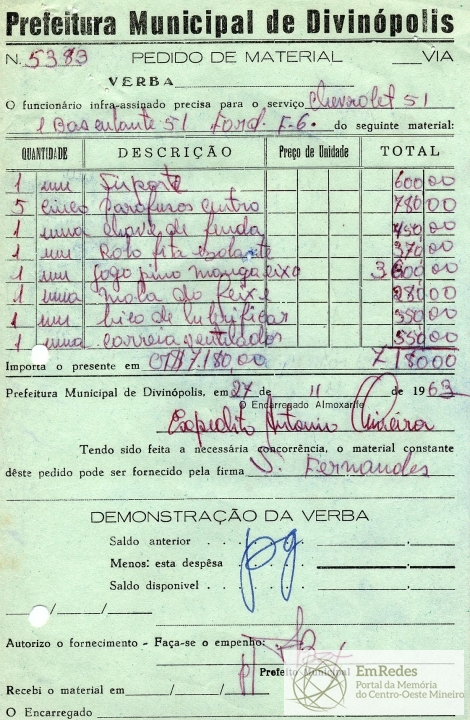 Prefeitura Municipal de Divinópolis
N. 5383 PEDIDO DE MATERIAL ___VIA
VERBA
O funcionário infra-assinado precisa para o serviço Chevrolet 51
1 Basculante 51 Ford. F-6. do seguinte material:
QUANTIDADE DESCRIÇÃO Preço de Unidade TOTAL
1 um Suporte 600 00
5 cinco parafusos centro 780 00
1 uma chave de fenda 450 00
1 um Rolo fita isolante 370 00
1 um jogo pino manga eixo 3800 00
1 uma mola do feixe 280 00
1 um bico de lubrificar 350 00
1 uma correia ventilador 550 00
Importa o presente em 7.180,00 718000
Prefeitura Municipal de Divinópolis, em 27 de 11 de 1963
O Encarregado Almoxarife
Expedito Antonio Oliveira
Tendo sido feita a necessária concorrência, o material constante
dêste pedido pode ser fornecido pela firma S. Fernandes
DEMONSTRAÇÃO DA VERBA
Saldo anterior . . .
Menos: esta despêsa
Saldo disponivel . .
pg
___/___/___
Autorizo o fornecimento - Faça-se o empenho:
p/ Prefeito Municipal
Recebi o material em ___/___/___
O Encarregado
EmRedes
Portal da Memória
do Centro-Oeste Mineiro